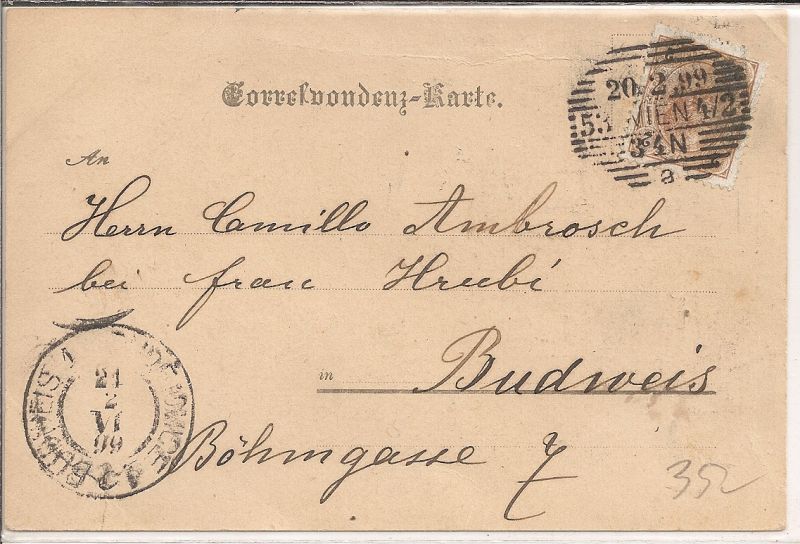 Correspondenz-Karte.
20.2.99
53 WIEN 4/2
3-4N
a
An
Herrn Camillo Ambrosch
bei Frau Hrubí
in Budweis
Böhmgasse 7
BUDWEIS 1
21
2
VI
99
352